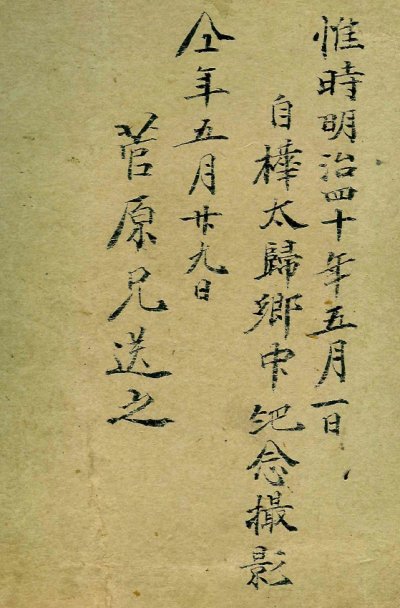 惟時明治四十年五月一日、
自樺太歸鄉中紀念撮影
仝年五月廿九日
菅原兄送之